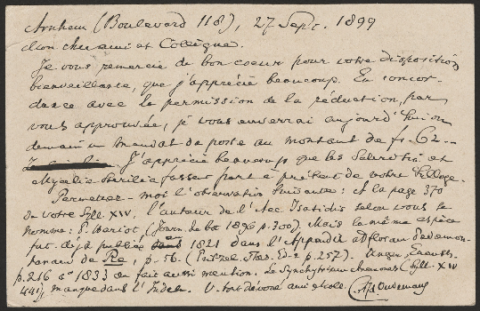 Arnhem (Boulevard 118), 27 Sept. 1899
Mon cher ami et Collègue.
Je vous remercie de bon coeur pour votre disposition
bienveillante, que j'apprécie beaucoup. En concor-
dance avec la permission de la réduction, par
vous approuvée, je vous enverrai aujourd'hui ou
demain un mandat de poste au montant de fr. 62.-
J'apprécie beaucoup que les et
fassent part à présent de votre Sylloge.
Permettez-moi l'observation suivante: à la page 370
de votre Syll. XIV. l'auteur de l'Aec. Isatidis selon vous se
nomme: P. Hariot (Journ. de bot. 1896 p. 300). Mais la même espèce
fut déjà publiée 1821 dans l'Appendix ad floram
de Re, p. 56. (Pritzel, Thes. Ed. 2 p. 257). Unger, Exanth.
p. 216 à 1833 en fait aussi mention. Le Synchytrium (Syll. XIV
441) manque dans l'Index. V. tout dévoué ami et coll. Oudemans